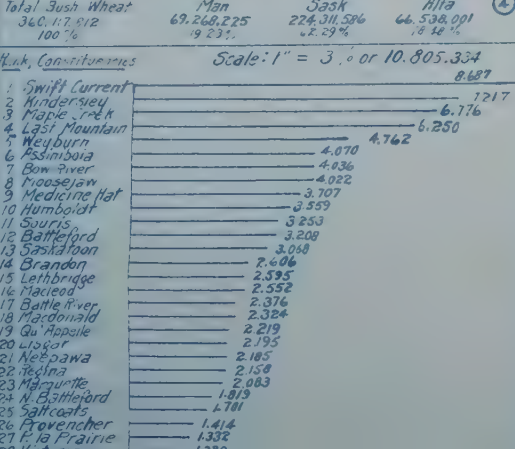 Total Bush Wheat Man Sask Alta 4
69.268.225 224.311.586 66.538.001
100% 19.23% 62.29% 18.48%
Rank, Constituencies Scale: 1" = 3% or 10.805.334
8.687
1 Swift Current
2 Kindersley 7.217
3 Maple Creek 6.776
4 Last Mountain 6.250
5 Weyburn 4.762
6 Assiniboia 4.070
7 Bow River 4.036
8 Moosejaw 4.022
9 Medicine Hat 3.707
10 Humboldt 3.559
11 Souris 3.253
12 Battleford 3.208
13 Saskatoon 3.068
14 Brandon 2.606
15 Lethbridge 2.595
16 Macleod 2.552
17 Battle River 2.376
18 Macdonald 2.324
19 Qu'Appelle 2.219
20 Lisgar 2.195
21 Neepawa 2.185
22 Regina 2.158
23 Marquette 2.083
24 N. Battleford 1.819
25 Saltcoats 1.781
26 Provencher 1.414
27 P. la Prairie 1.332